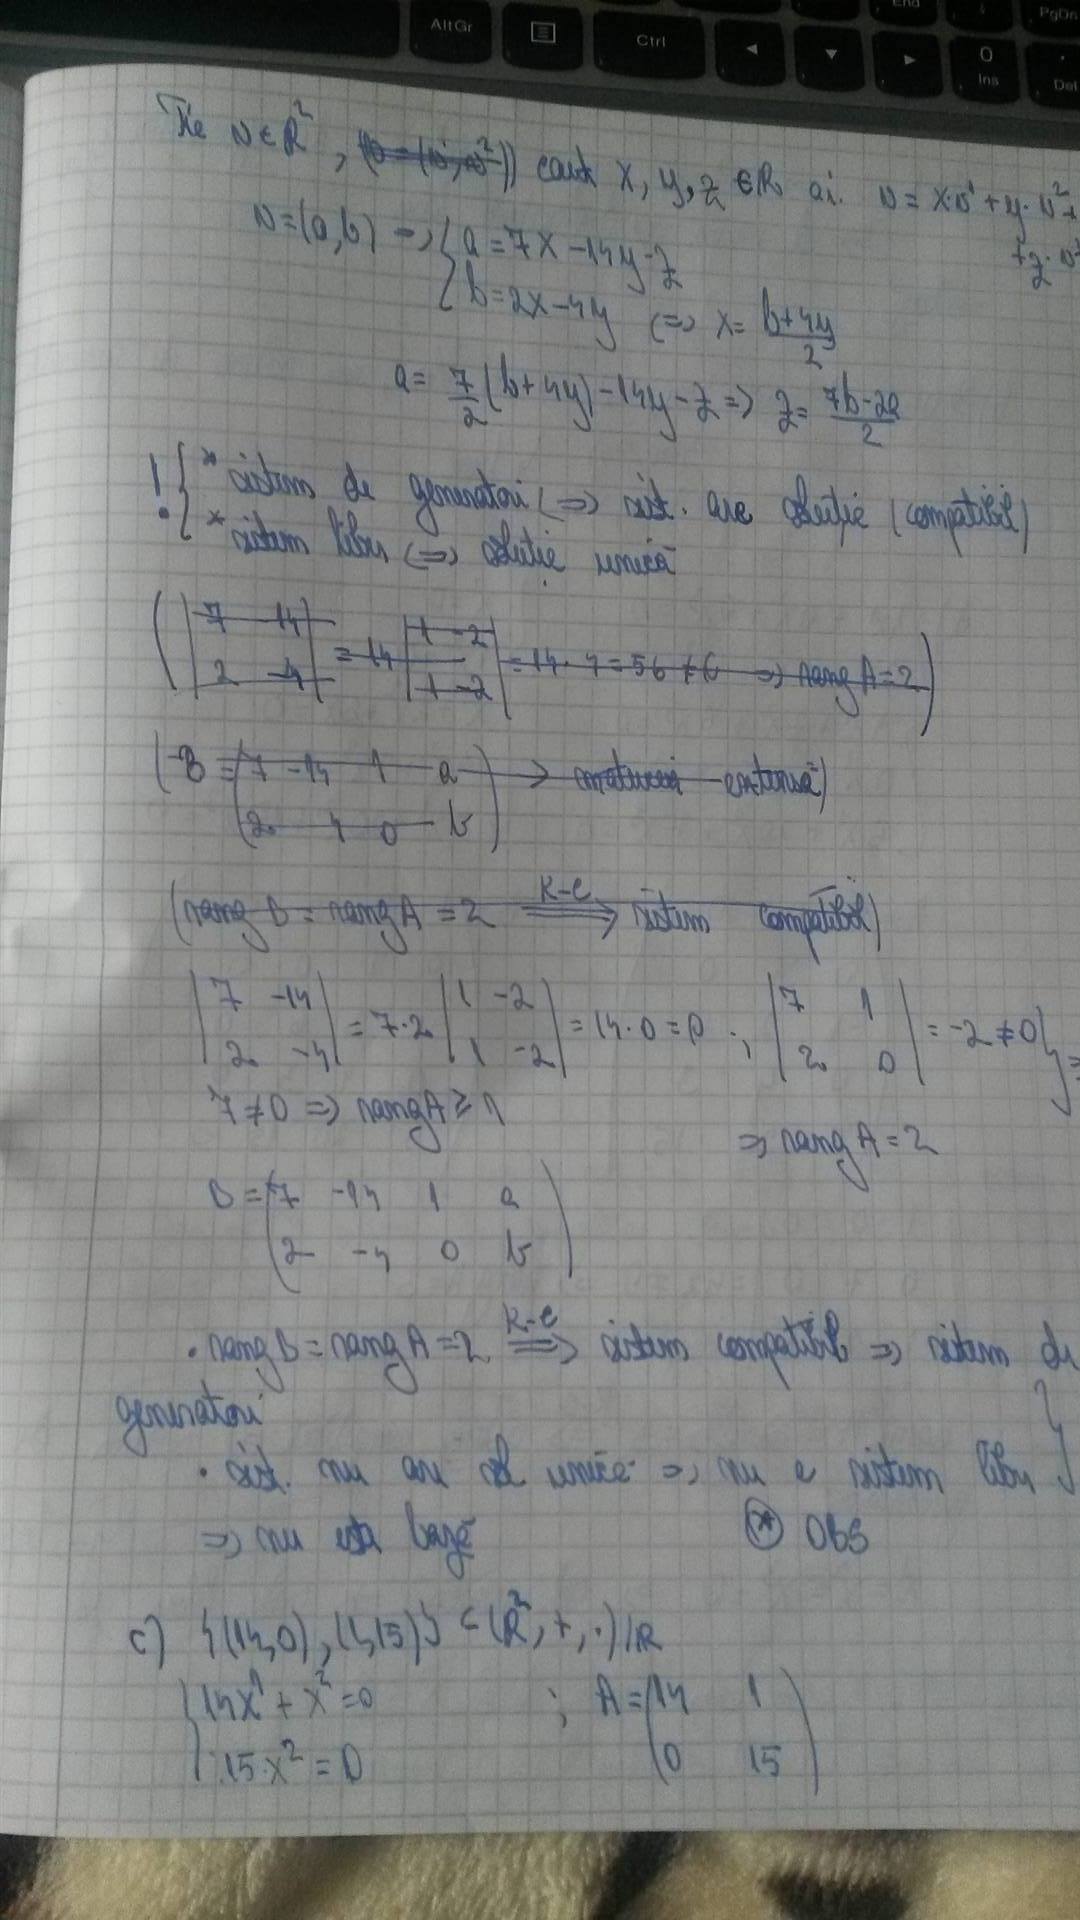 AltGr
Ctrl
End
PgDn
0
Ins
Del
Fie v∈R², caut x, y, z ∈R ai. v = x·v¹ + y·v² +
+ z·v³
v=(a,b) => { a = 7x -14y -z
b = 2x -4y <=> x = (b+4y)/2
a = 7/2 (b+4y) -14y -z => z = (7b-2a)/2
! { * sistem de generatori <=> sist. are soluție (compatibil)
* sistem liber <=> soluție unică
( |7 -14; 2 -4| = 14 |1 -2; 1 -2| = 14·4 = 56 ≠ 0 => rang A = 2 )
( B = (7 -14 1 a; 2 4 0 b) -> matricea extinsă )
( rang B = rang A = 2 =K-C=> sistem compatibil )
|7 -14; 2 -4| = 7·2 |1 -2; 1 -2| = 14·0 = 0 ; |7 1; 2 0| = -2 ≠ 0 } =
7 ≠ 0 => rang A ≥ 1
=> rang A = 2
B = (7 -14 1 a; 2 -4 0 b)
· rang B = rang A = 2 =K-C=> sistem compatibil => sistem de
generatori
· sist. nu are sol unică => nu e sistem liber }
=> nu este bază ⊛ OBS
c) {(14,0), (1,15)} ⊂ (R², +, ·)/R
{ 14x¹ + x² = 0 ; A = (14 1; 0 15)
15·x² = 0